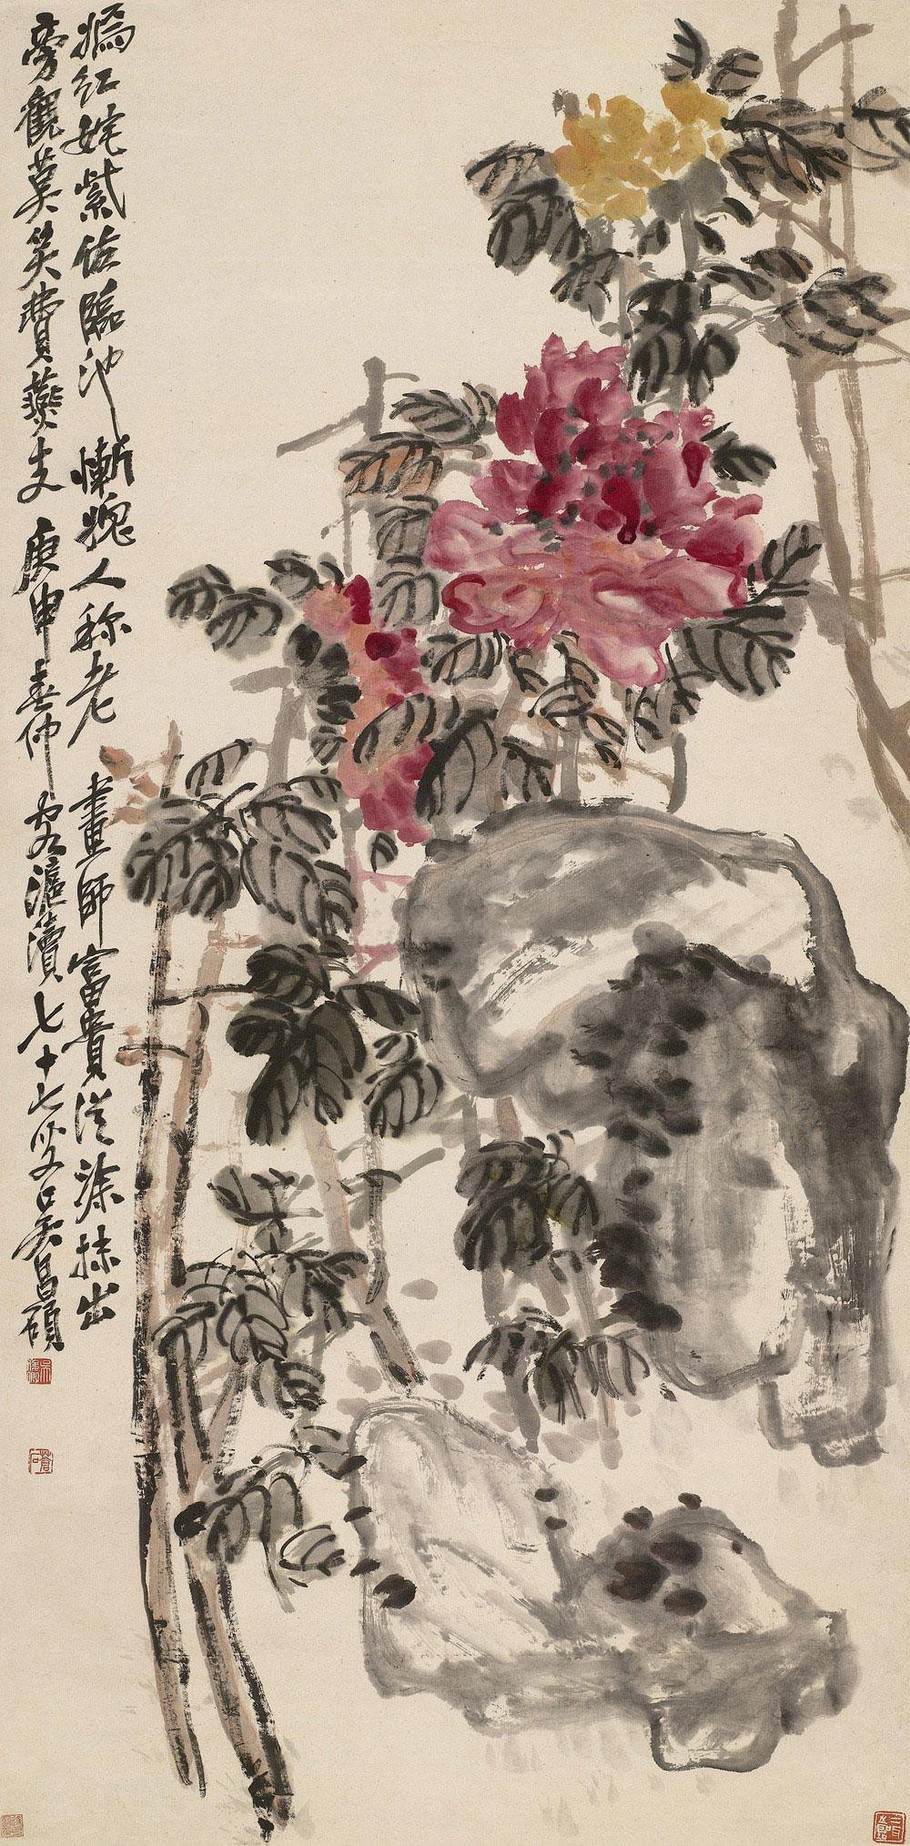 嫣红姹紫佐臨池慚愧人称老畫師富貴從涂抹出
旁觀莫笑費燕支庚申春仲客滬瀆七十七叟吳昌碩